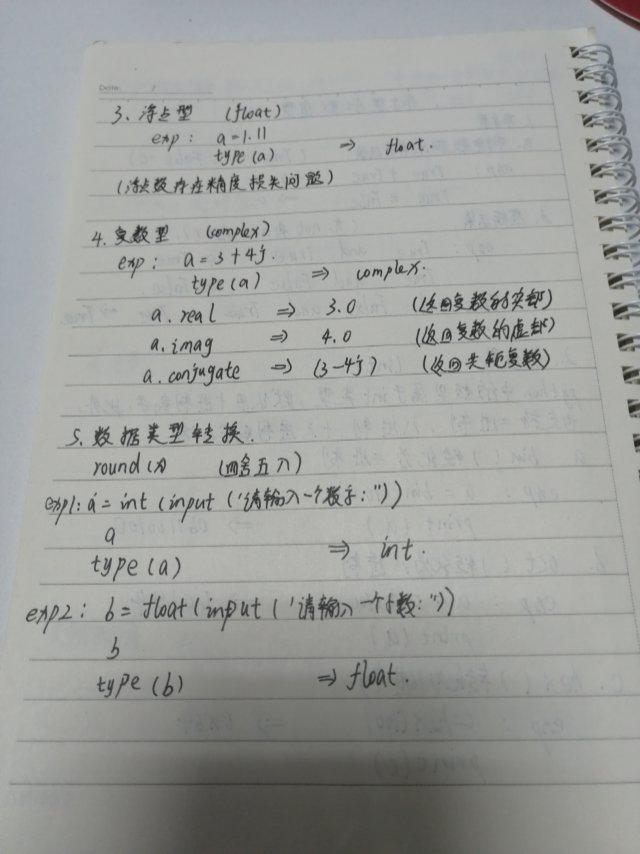 Date. /
3、浮点型 (float)
exp: a=1.11
type(a) ⇒ float.
(浮点数存在精度损失问题)
4、复数型 (complex)
exp: a=3+4j.
type(a) ⇒ complex.
a.real ⇒ 3.0 (返回复数的实部)
a.imag ⇒ 4.0 (返回复数的虚部)
a.conjugate ⇒ (3-4j) (返回共轭复数)
5、数据类型转换.
round(x) (四舍五入)
exp1: a=int(input('请输入一个数字:"))
a
type(a) ⇒ int.
exp2: b=float(input('请输入一个小数:"))
b
type(b) ⇒ float.